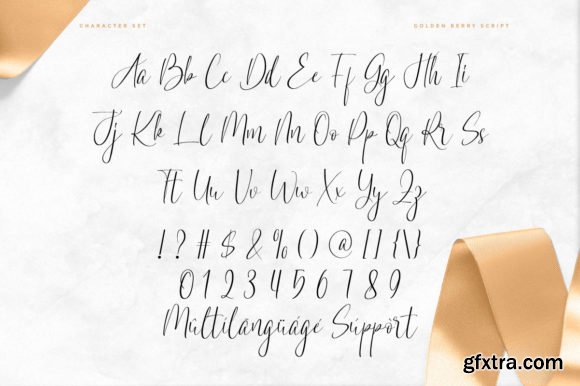 CHARACTER SET
GOLDEN BERRY SCRIPT
Aa Bb Cc Dd Ee Ff Gg Hh Ii
Jj Kk Ll Mm Nn Oo Pp Qq Rr Ss
Tt Uu Vv Ww Xx Yy Zz
! ? # $ & % ( ) @ [ ] { \ }
0 1 2 3 4 5 6 7 8 9
Múltílãngüágé Súppòrt
gfxtra.com